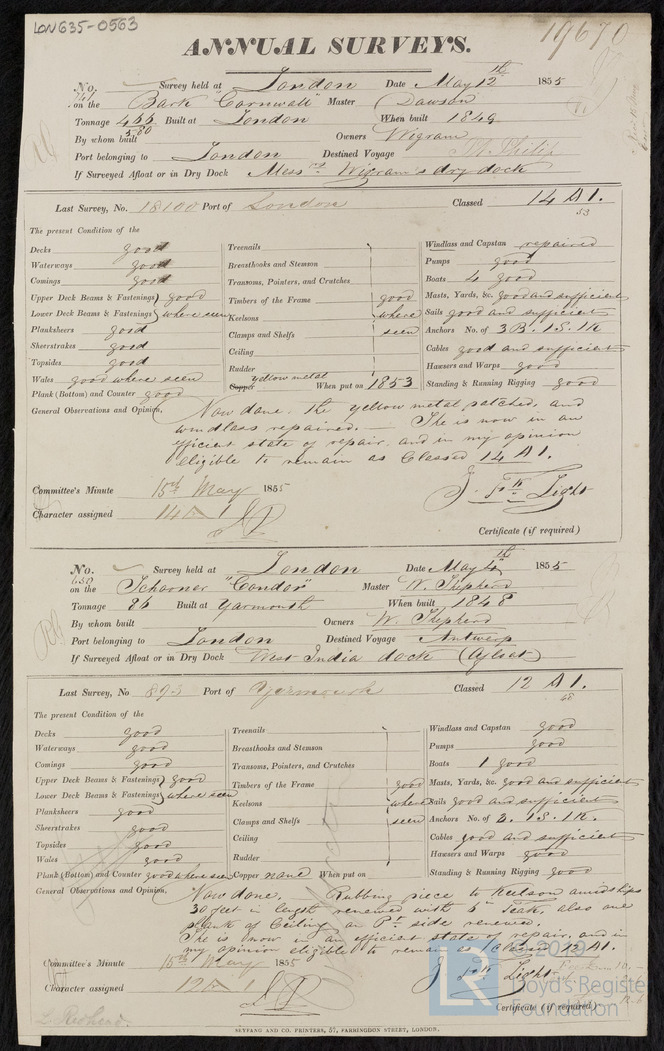 LON635-0563
19670
ANNUAL SURVEYS.
No. 741 Survey held at London Date May 12th 1855
on the Bark "Cornwall" Master Dawson
Tonnage 466 580 Built at London When built 1849
By whom built Owners Wigram
Port belonging to London Destined Voyage
If Surveyed Afloat or in Dry Dock Messrs Wigram's dry dock
Last Survey, No. 18100 Port of London Classed 14 A 1.
53
The present Condition of the
Decks good
Waterways good
Comings good
Upper Deck Beams & Fastenings } good
Lower Deck Beams & Fastenings } where seen
Planksheers good
Sheerstrakes good
Topsides good
Wales good where seen
Plank (Bottom) and Counter good
Treenails
Breasthooks and Stemson
Transoms, Pointers, and Crutches
Timbers of the Frame good
Keelsons where
Clamps and Shelfs seen
Ceiling
Rudder
Copper yellow metal When put on 1853
Windlass and Capstan repaired
Pumps good
Boats 4 good
Masts, Yards, &c. good and sufficient
Sails good and sufficient
Anchors No. of 3 B. 1 S. 1 K
Cables good and sufficient
Hawsers and Warps good
Standing & Running Rigging good
General Observations and Opinion, Now done. the yellow metal patched, and
windlass repaired. — She is now in an
efficient state of repair, and in my opinion
eligible to remain as Classed 14 A 1.
Committee's Minute 15th May 1855
Character assigned 14 A 1
Certificate (if required)
No. 650 Survey held at London Date May 4th 1855
on the Schooner "Condor" Master W. Shepherd
Tonnage 86 Built at Yarmouth When built 1848
By whom built Owners W. Shepherd
Port belonging to London Destined Voyage Antwerp
If Surveyed Afloat or in Dry Dock West India dock (Afloat)
Last Survey, No 893 Port of Yarmouth Classed 12 A 1.
The present Condition of the
Decks good
Waterways good
Comings good
Upper Deck Beams & Fastenings } good
Lower Deck Beams & Fastenings } where seen
Planksheers good
Sheerstrakes good
Topsides good
Wales good
Plank (Bottom) and Counter good where seen
Treenails
Breasthooks and Stemson
Transoms, Pointers, and Crutches
Timbers of the Frame good
Keelsons where
Clamps and Shelfs seen
Ceiling
Rudder
Copper none When put on
Windlass and Capstan good
Pumps good
Boats 1 good
Masts, Yards, &c. good and sufficient
Sails good and sufficient
Anchors No. of 2. 1 S. 1 K.
Cables good and sufficient
Hawsers and Warps good
Standing & Running Rigging good
General Observations and Opinion, Now done. Rubbing piece to Keelson amidships
30 feet in length renewed with 6in Teak, also one
plank of Ceiling on Pt side renewed.
She is now in an efficient state of repair, and in
my opinion eligible to remain as Classed 12 A 1.
Committee's Minute 15th May 1855
Character assigned 12 A
Certificate (if required)
L. Redhead.
SEYFANG AND CO. PRINTERS, 57, FARRINGDON STREET, LONDON.
LR
© 2019
Lloyd's Register
Foundation